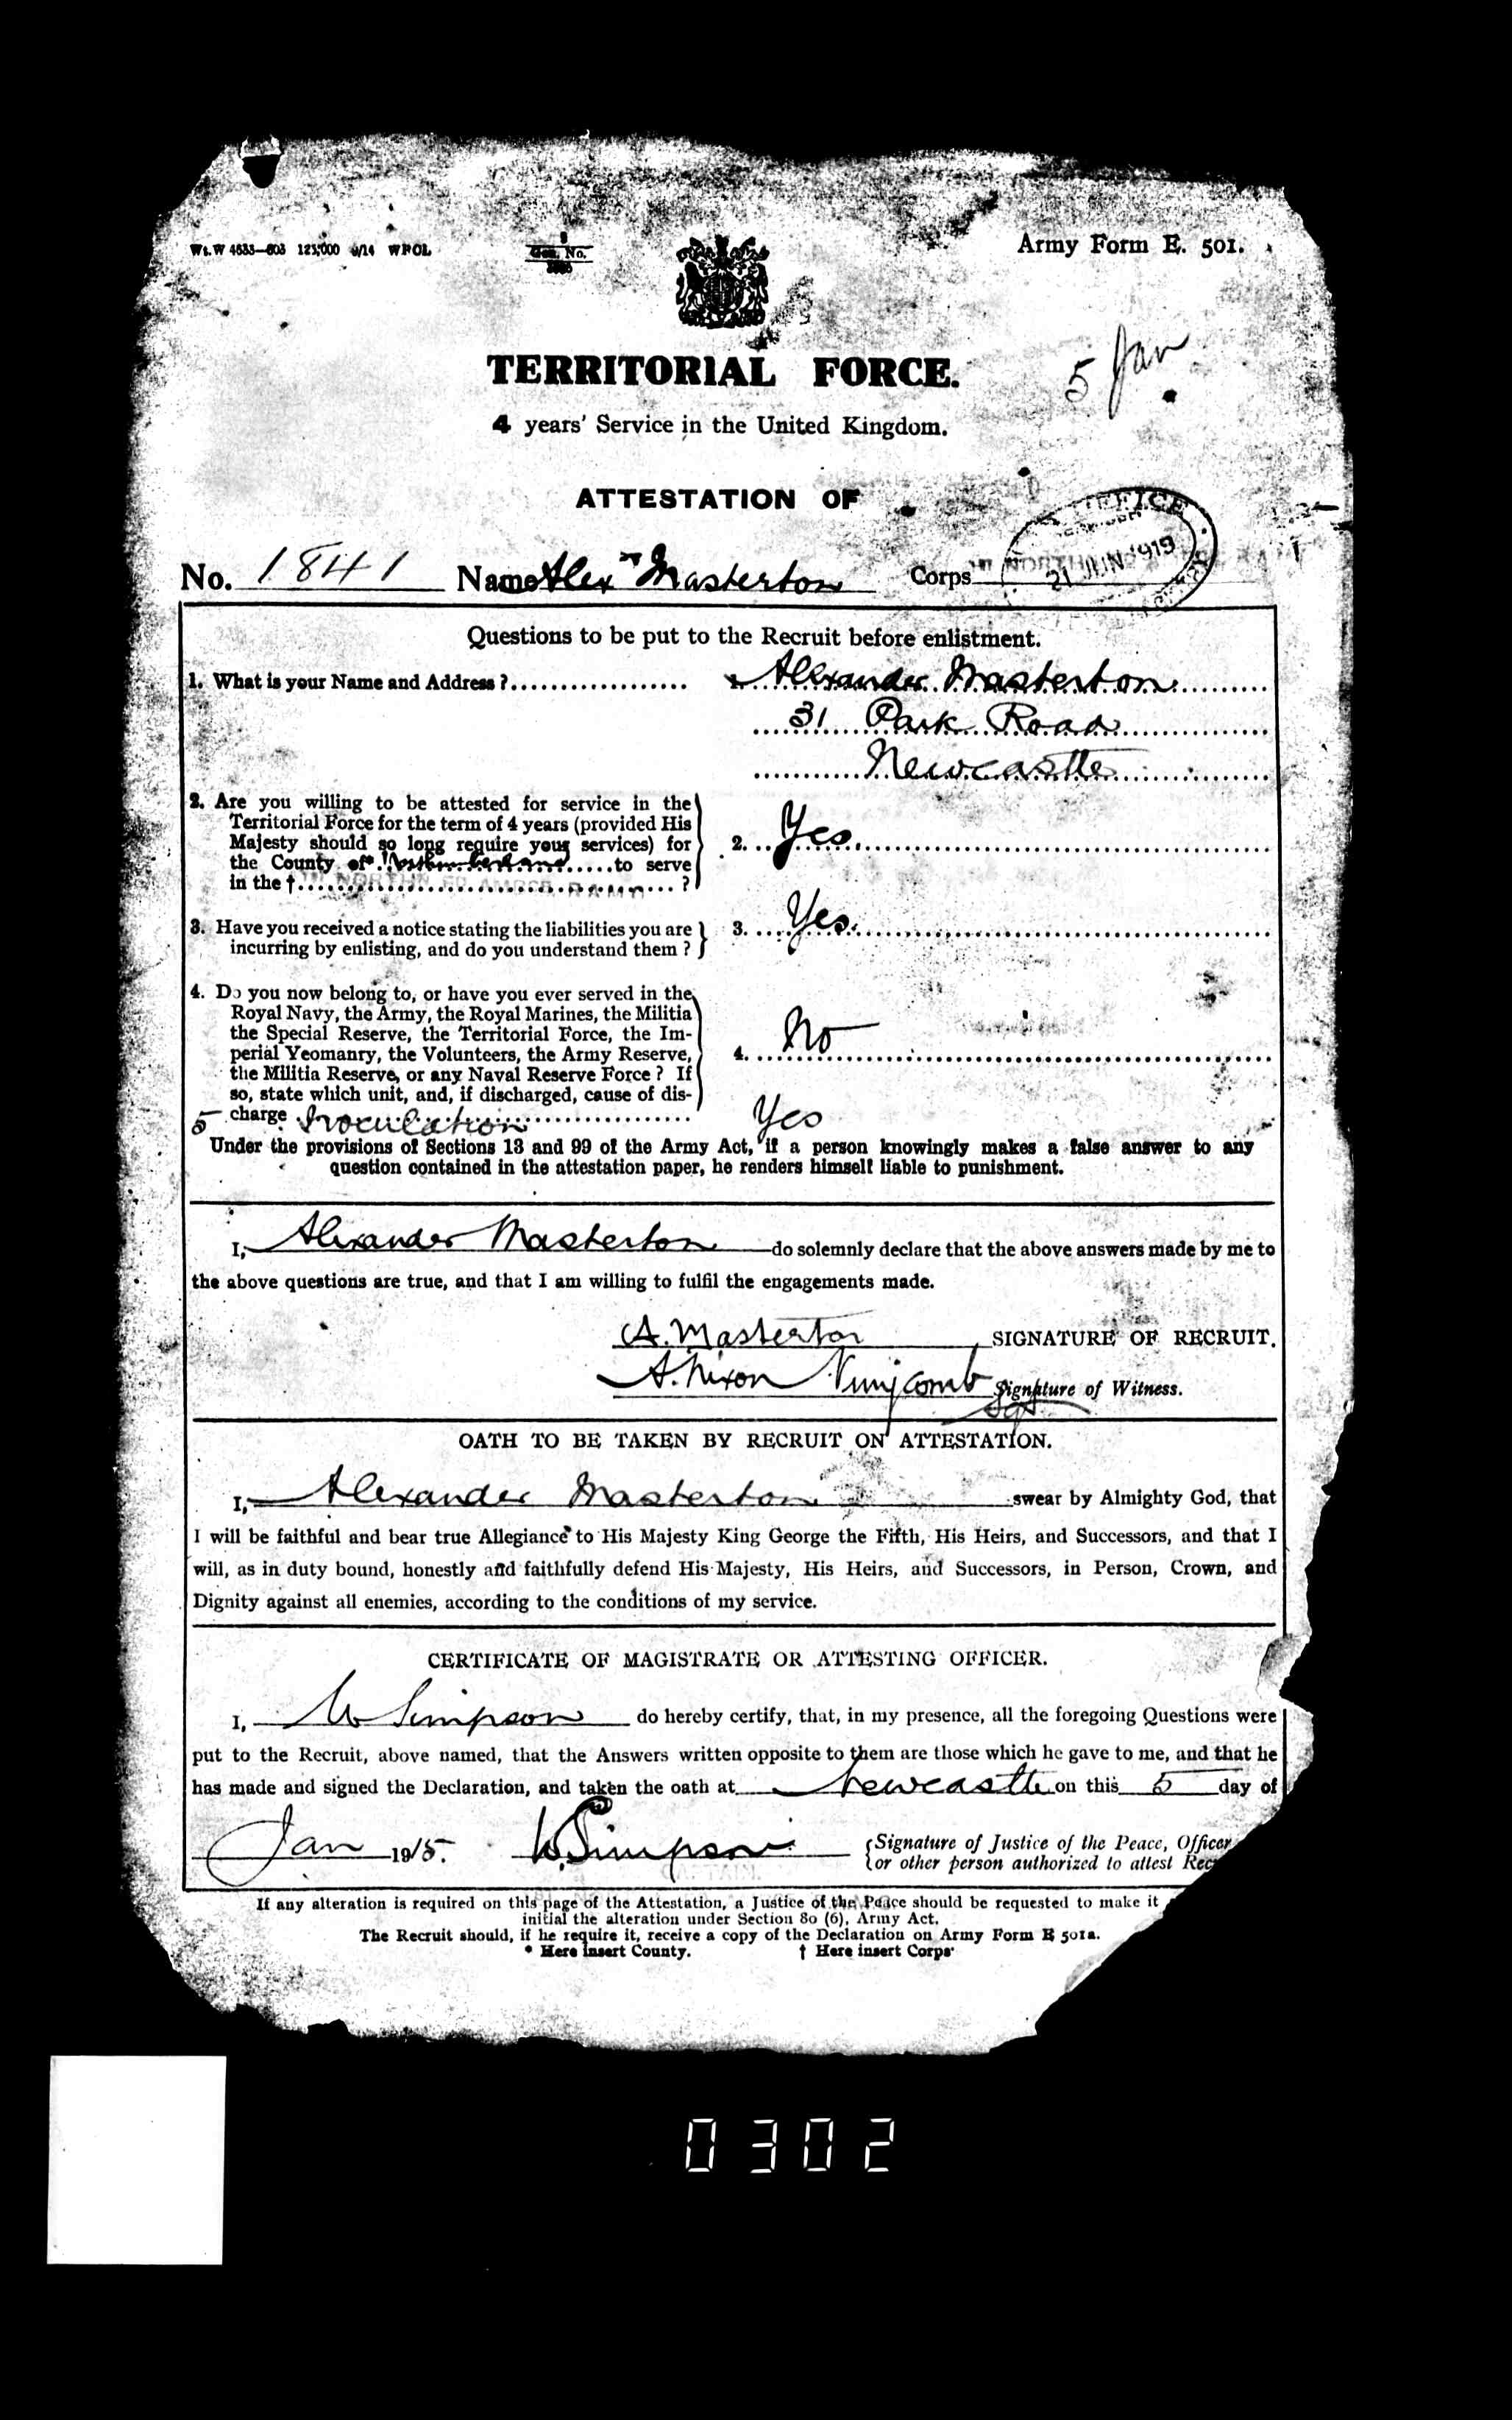 Wt. W 4633—603 125,000 9/14 WPOL
Gen. No.
Army Form E. 501.
5 Jan
TERRITORIAL FORCE.
4 years' Service in the United Kingdom.
ATTESTATION OF
No. 1841 Name Alexr Masterton Corps
OFFICE
21 JUN 1919
Questions to be put to the Recruit before enlistment.
1. What is your Name and Address? Alexander Masterton
31 Park Road
Newcastle
2. Are you willing to be attested for service in the
Territorial Force for the term of 4 years (provided His
Majesty should so long require your services) for 2. Yes.
the County of* Northumberland to serve
in the † ?
3. Have you received a notice stating the liabilities you are 3. Yes.
incurring by enlisting, and do you understand them ?
4. Do you now belong to, or have you ever served in the
Royal Navy, the Army, the Royal Marines, the Militia
the Special Reserve, the Territorial Force, the Im-
perial Yeomanry, the Volunteers, the Army Reserve, 4. No
the Militia Reserve, or any Naval Reserve Force ? If
so, state which unit, and, if discharged, cause of dis-
charge
5 Inoculation Yes
Under the provisions of Sections 13 and 99 of the Army Act, if a person knowingly makes a false answer to any
question contained in the attestation paper, he renders himself liable to punishment.
I, Alexander Masterton do solemnly declare that the above answers made by me to
the above questions are true, and that I am willing to fulfil the engagements made.
A. Masterton SIGNATURE OF RECRUIT.
A. Nixon Vinycomb Signature of Witness.
Sgt
OATH TO BE TAKEN BY RECRUIT ON ATTESTATION.
I, Alexander Masterton swear by Almighty God, that
I will be faithful and bear true Allegiance to His Majesty King George the Fifth, His Heirs, and Successors, and that I
will, as in duty bound, honestly and faithfully defend His Majesty, His Heirs, and Successors, in Person, Crown, and
Dignity against all enemies, according to the conditions of my service.
CERTIFICATE OF MAGISTRATE OR ATTESTING OFFICER.
I, W Simpson do hereby certify, that, in my presence, all the foregoing Questions were
put to the Recruit, above named, that the Answers written opposite to them are those which he gave to me, and that he
has made and signed the Declaration, and taken the oath at Newcastle on this 5 day of
Jan 1915. W. Simpson {Signature of Justice of the Peace, Officer
or other person authorized to attest Rec
If any alteration is required on this page of the Attestation, a Justice of the Peace should be requested to make it
initial the alteration under Section 80 (6), Army Act.
The Recruit should, if he require it, receive a copy of the Declaration on Army Form E 501a.
* Here insert County. † Here insert Corps
0302